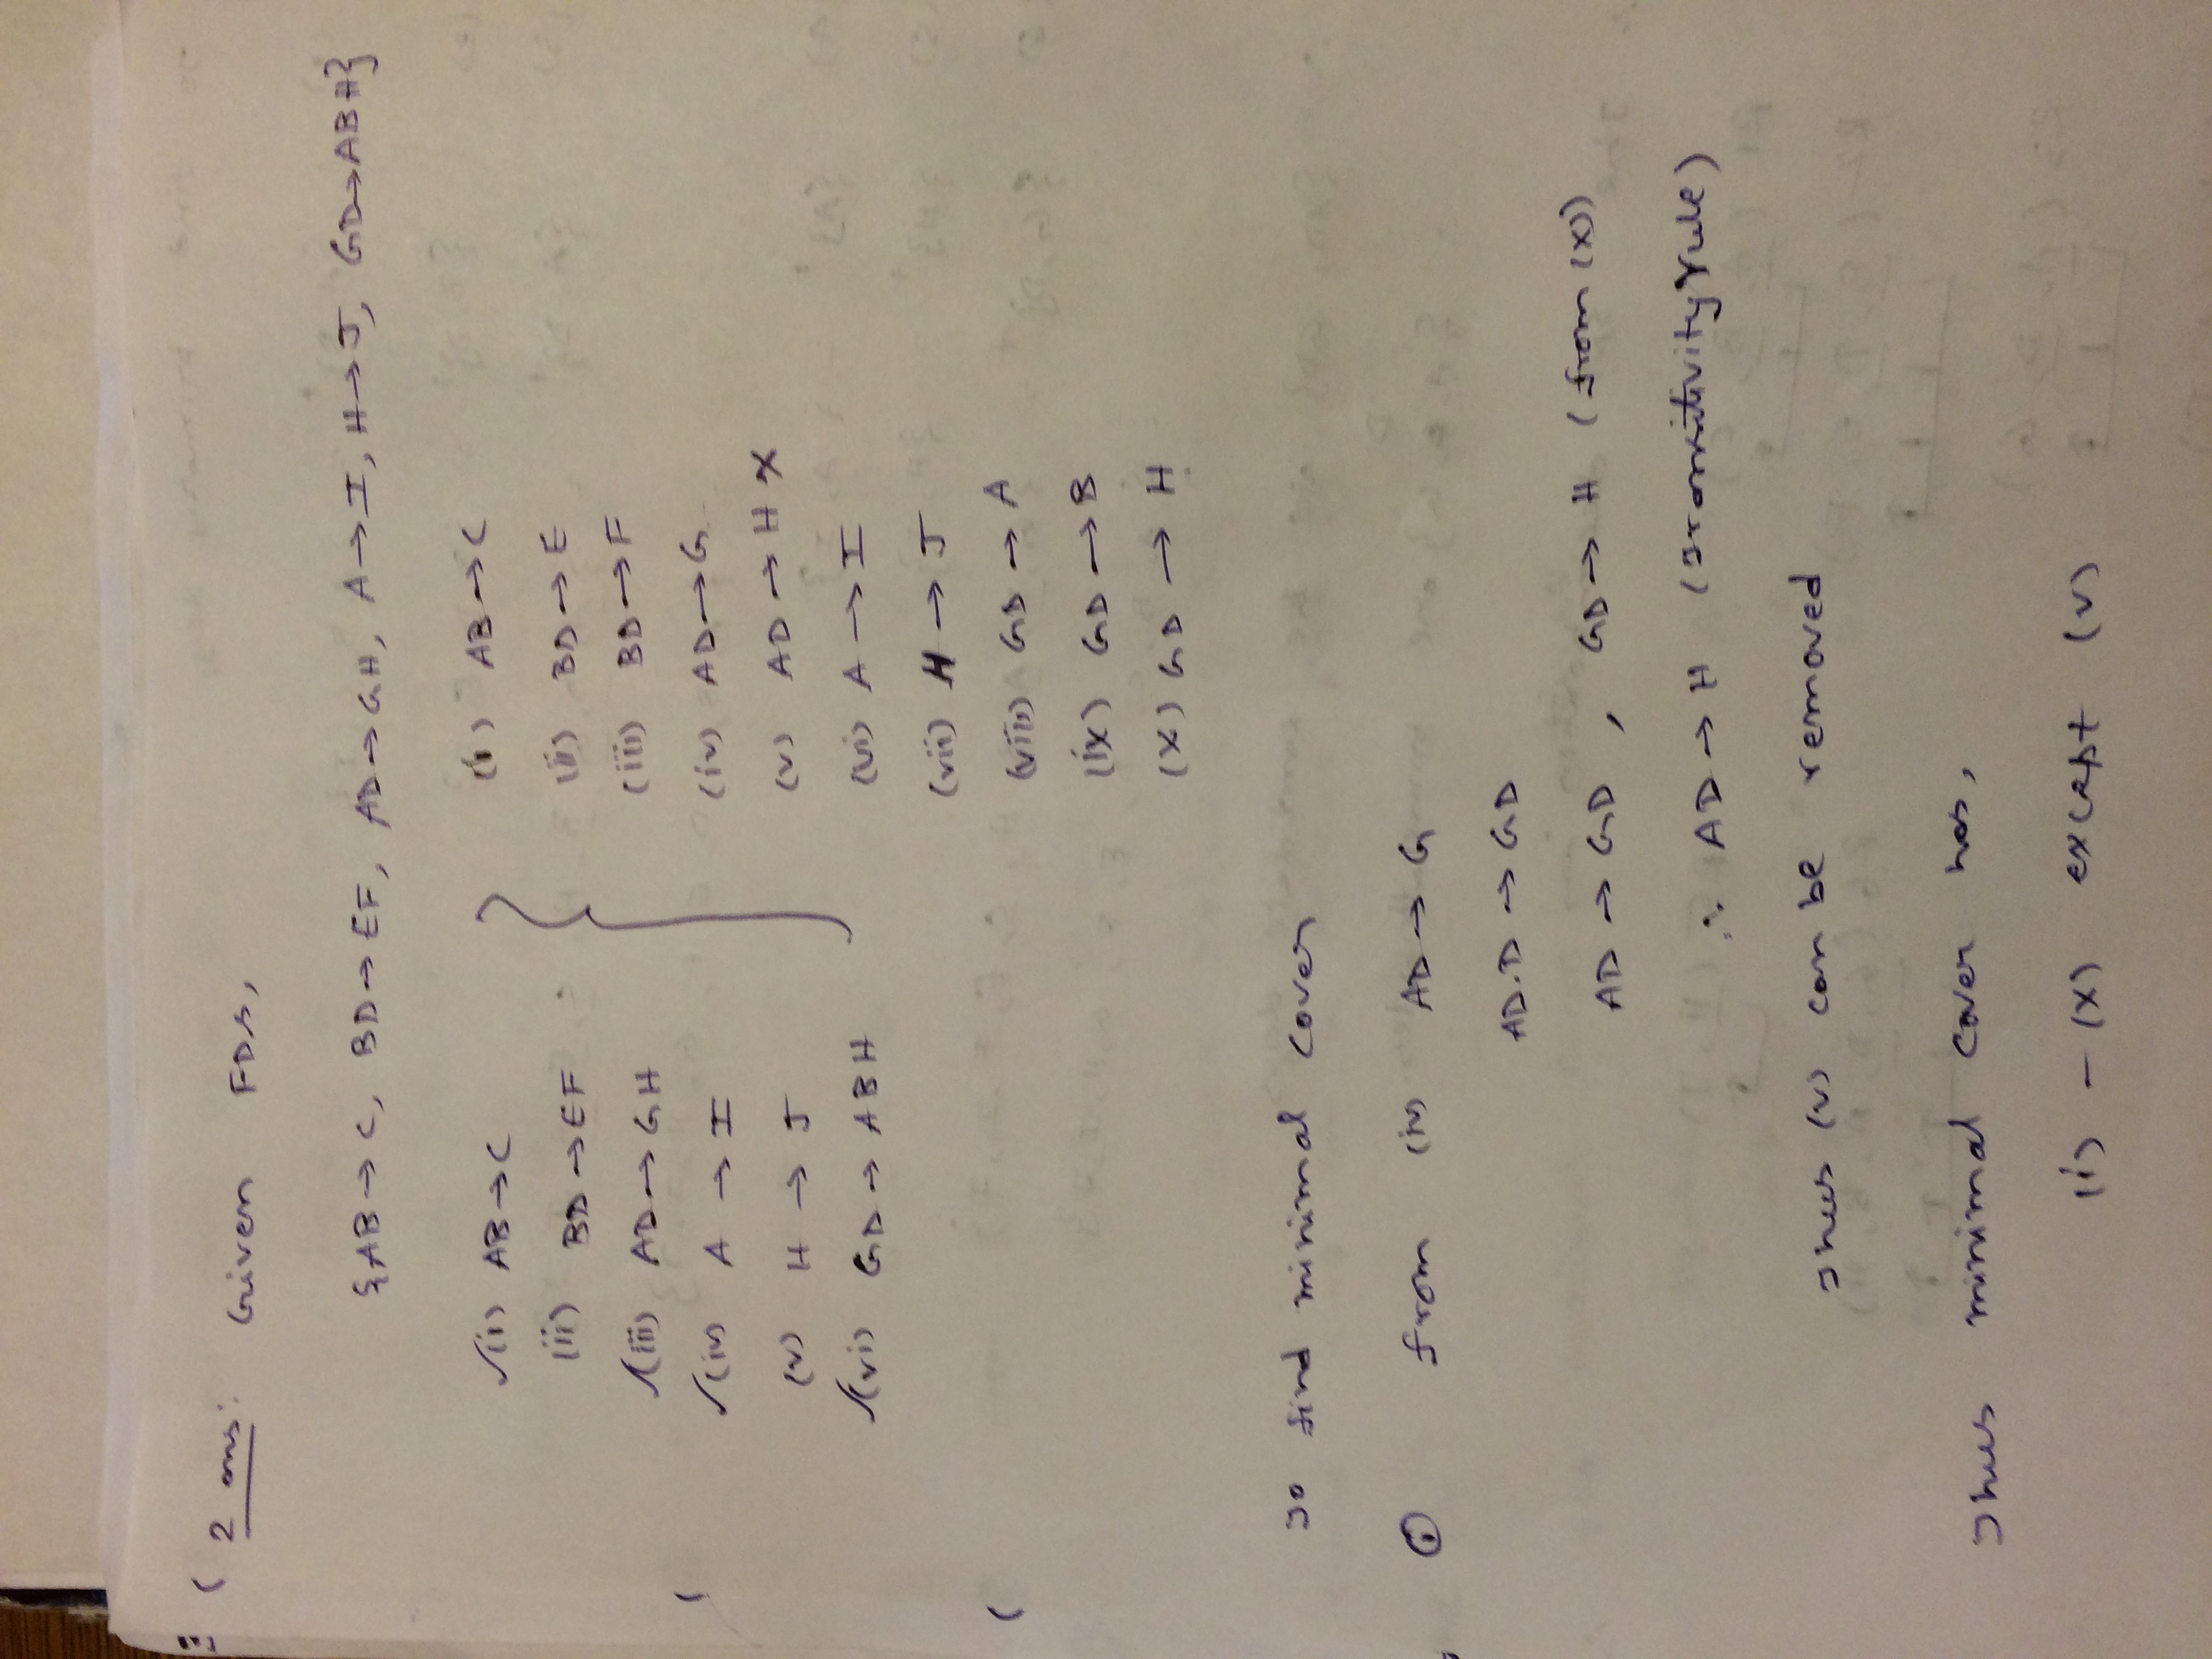 2 ans: Given FDs,
{AB→C, BD→EF, AD→GH, A→I, H→J, GD→ABH}
✓(i) AB→C
(ii) BD→EF
✓(iii) AD→GH
✓(iv) A→I
(v) H→J
✓(vi) GD→ABH
(i) AB→C
(ii) BD→E
(iii) BD→F
(iv) AD→G
(v) AD→H X
(vi) A→I
(vii) H→J
(viii) GD→A
(ix) GD→B
(x) GD→H
To find minimal cover
① from (iv) AD→G
AD.D→GD
AD→GD, GD→H (from (x))
∴ AD→H (Transitivity rule)
Thus (v) can be removed
Thus minimal cover has,
(i) - (x) except (v)